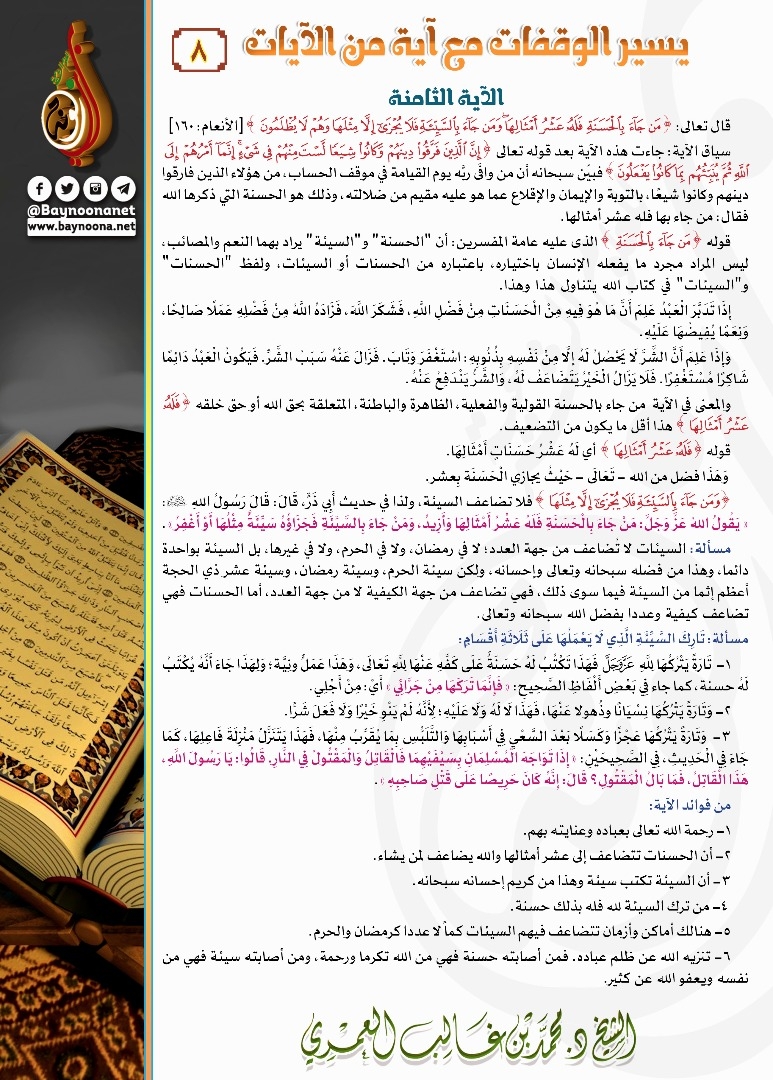 يسير الوقفات مع آية من الآيات
٨
الآية الثامنة
قال تعالى: ﴿ مَن جَآءَ بِٱلْحَسَنَةِ فَلَهُۥ عَشْرُ أَمْثَالِهَا ۖ وَمَن جَآءَ بِٱلسَّيِّئَةِ فَلَا يُجْزَىٰٓ إِلَّا مِثْلَهَا وَهُمْ لَا يُظْلَمُونَ ﴾ [الأنعام: ١٦٠]
سياق الآية: جاءت هذه الآية بعد قوله تعالى ﴿ إِنَّ ٱلَّذِينَ فَرَّقُوا۟ دِينَهُمْ وَكَانُوا۟ شِيَعًا لَّسْتَ مِنْهُمْ فِى شَىْءٍ ۚ إِنَّمَآ أَمْرُهُمْ إِلَى
ٱللَّهِ ثُمَّ يُنَبِّئُهُم بِمَا كَانُوا۟ يَفْعَلُونَ ﴾ فبيّن سبحانه أن من وافَى ربَّه يوم القيامة في موقف الحساب، من هؤلاء الذين فارقوا
دينهم وكانوا شيعًا، بالتوبة والإيمان والإقلاع عما هو عليه مقيم من ضلالته، وذلك هو الحسنة التي ذكرها الله
فقال: من جاء بها فله عشر أمثالها.
قوله ﴿ مَن جَآءَ بِٱلْحَسَنَةِ ﴾ الذى عليه عامة المفسرين: أن "الحسنة" و"السيئة" يراد بهما النعم والمصائب،
ليس المراد مجرد ما يفعله الإنسان باختياره، باعتباره من الحسنات أو السيئات، ولفظ "الحسنات"
و"السيئات" في كتاب الله يتناول هذا وهذا.
إِذَا تَدَبَّرَ الْعَبْدُ عَلِمَ أَنَّ مَا هُوَ فِيهِ مِنْ الْحَسَنَاتِ مِنْ فَضْلِ اللَّهِ، فَشَكَرَ اللَّهَ، فَزَادَهُ اللَّهُ مِنْ فَضْلِهِ عَمَلًا صَالِحًا،
وَنِعَمًا يُفِيضُهَا عَلَيْهِ.
وَإِذَا عَلِمَ أَنَّ الشَّرَّ لَا يَحْصُلُ لَهُ إِلَّا مِنْ نَفْسِهِ بِذُنُوبِهِ: اسْتَغْفَرَ وَتَابَ. فَزَالَ عَنْهُ سَبَبُ الشَّرِّ. فَيَكُونُ الْعَبْدُ دَائِمًا
شَاكِرًا مُسْتَغْفِرًا. فَلَا يَزَالُ الْخَيْرُ يَتَضَاعَفُ لَهُ، وَالشَّرُّ يَنْدَفِعُ عَنْهُ.
والمعنى في الآية من جاء بالحسنة القولية والفعلية، الظاهرة والباطنة، المتعلقة بحق الله أو حق خلقه ﴿ فَلَهُۥ
عَشْرُ أَمْثَالِهَا ﴾ هذا أقل ما يكون من التضعيف.
قوله ﴿ فَلَهُۥ عَشْرُ أَمْثَالِهَا ﴾ أي لَهُ عَشْرُ حَسَنَاتٍ أَمْثَالِهَا.
وَهَذَا فضل من الله - تَعَالَى - حَيْثُ يجازي الْحَسَنَة بعشر.
﴿ وَمَن جَآءَ بِٱلسَّيِّئَةِ فَلَا يُجْزَىٰٓ إِلَّا مِثْلَهَا ﴾ فلا تضاعف السيئة، ولذا في حديث أبي ذَرٍّ، قَالَ: قَالَ رَسُولُ اللهِ ﷺ:
« يَقُولُ اللهُ عَزَّ وَجَلَّ: مَنْ جَاءَ بِالْحَسَنَةِ فَلَهُ عَشْرُ أَمْثَالِهَا وَأَزِيدُ، وَمَنْ جَاءَ بِالسَّيِّئَةِ فَجَزَاؤُهُ سَيِّئَةٌ مِثْلُهَا أَوْ أَغْفِرُ ».
مسألة: السيئات لا تُضاعف من جهة العدد؛ لا في رمضان، ولا في الحرم، ولا في غيرها، بل السيئة بواحدة
دائما، وهذا من فضله سبحانه وتعالى وإحسانه، ولكن سيئة الحرم، وسيئة رمضان، وسيئة عشر ذي الحجة
أعظم إثما من السيئة فيما سوى ذلك، فهي تضاعف من جهة الكيفية لا من جهة العدد، أما الحسنات فهي
تضاعف كيفية وعددا بفضل الله سبحانه وتعالى.
مسألة: تَارِكَ السَّيِّئَةِ الَّذِي لَا يَعْمَلُهَا عَلَى ثَلَاثَةِ أَقْسَامٍ:
١- تَارَةً يَتْرُكُهَا لِلَّهِ عَزَّوَجَلَّ فَهَذَا تُكْتَبُ لَهُ حَسَنَةٌ عَلَى كَفِّهِ عَنْهَا لِلَّهِ تَعَالَى، وَهَذَا عَمَلٌ ونِيَّة؛ وَلِهَذَا جَاءَ أَنَّهُ يُكْتَبُ
لَهُ حسنة، كما جاء في بَعْضِ أَلْفَاظِ الصَّحِيحِ: « فَإِنَّمَا تَرَكَهَا مِنْ جَرَّائِي » أَيْ: مِنْ أَجْلِي.
٢- وَتَارَةً يَتْرُكُهَا نِسْيَانًا وذُهولا عَنْهَا، فَهَذَا لَا لَهُ وَلَا عَلَيْهِ؛ لِأَنَّهُ لَمْ يَنْوِ خَيْرًا وَلَا فَعَلَ شَرًّا.
٣- وَتَارَةً يَتْرُكُهَا عَجْزًا وَكَسَلًا بَعْدَ السَّعْيِ فِي أَسْبَابِهَا وَالتَّلَبُّسِ بِمَا يُقَرِّبُ مِنْهَا، فَهَذَا يَتَنَزَّلُ مَنْزِلَةَ فَاعِلِهَا، كَمَا
جَاءَ فِي الْحَدِيثِ، فِي الصَّحِيحَيْنِ: « إِذَا تَوَاجَهَ الْمُسْلِمَانِ بِسَيْفَيْهِمَا فَالْقَاتِلُ وَالْمَقْتُولُ فِي النَّارِ. قَالُوا: يَا رَسُولَ اللَّهِ،
هَذَا الْقَاتِلُ، فَمَا بَالُ الْمَقْتُولِ؟ قَالَ: إِنَّهُ كَانَ حَرِيصًا عَلَى قَتْلِ صَاحِبِهِ ».
من فوائد الآية:
١- رحمة الله تعالى بعباده وعنايته بهم.
٢- أن الحسنات تتضاعف إلى عشر أمثالها والله يضاعف لمن يشاء.
٣- أن السيئة تكتب سيئة وهذا من كريم إحسانه سبحانه.
٤- من ترك السيئة لله فله بذلك حسنة.
٥- هنالك أماكن وأزمان تتضاعف فيهم السيئات كماً لا عددا كرمضان والحرم.
٦- تنزيه الله عن ظلم عباده. فمن أصابته حسنة فهي من الله تكرما ورحمة، ومن أصابته سيئة فهي من
نفسه ويعفو الله عن كثير.
الشيخ د. محمد بن غالب العمري
@Baynoonanet
www.baynoona.net